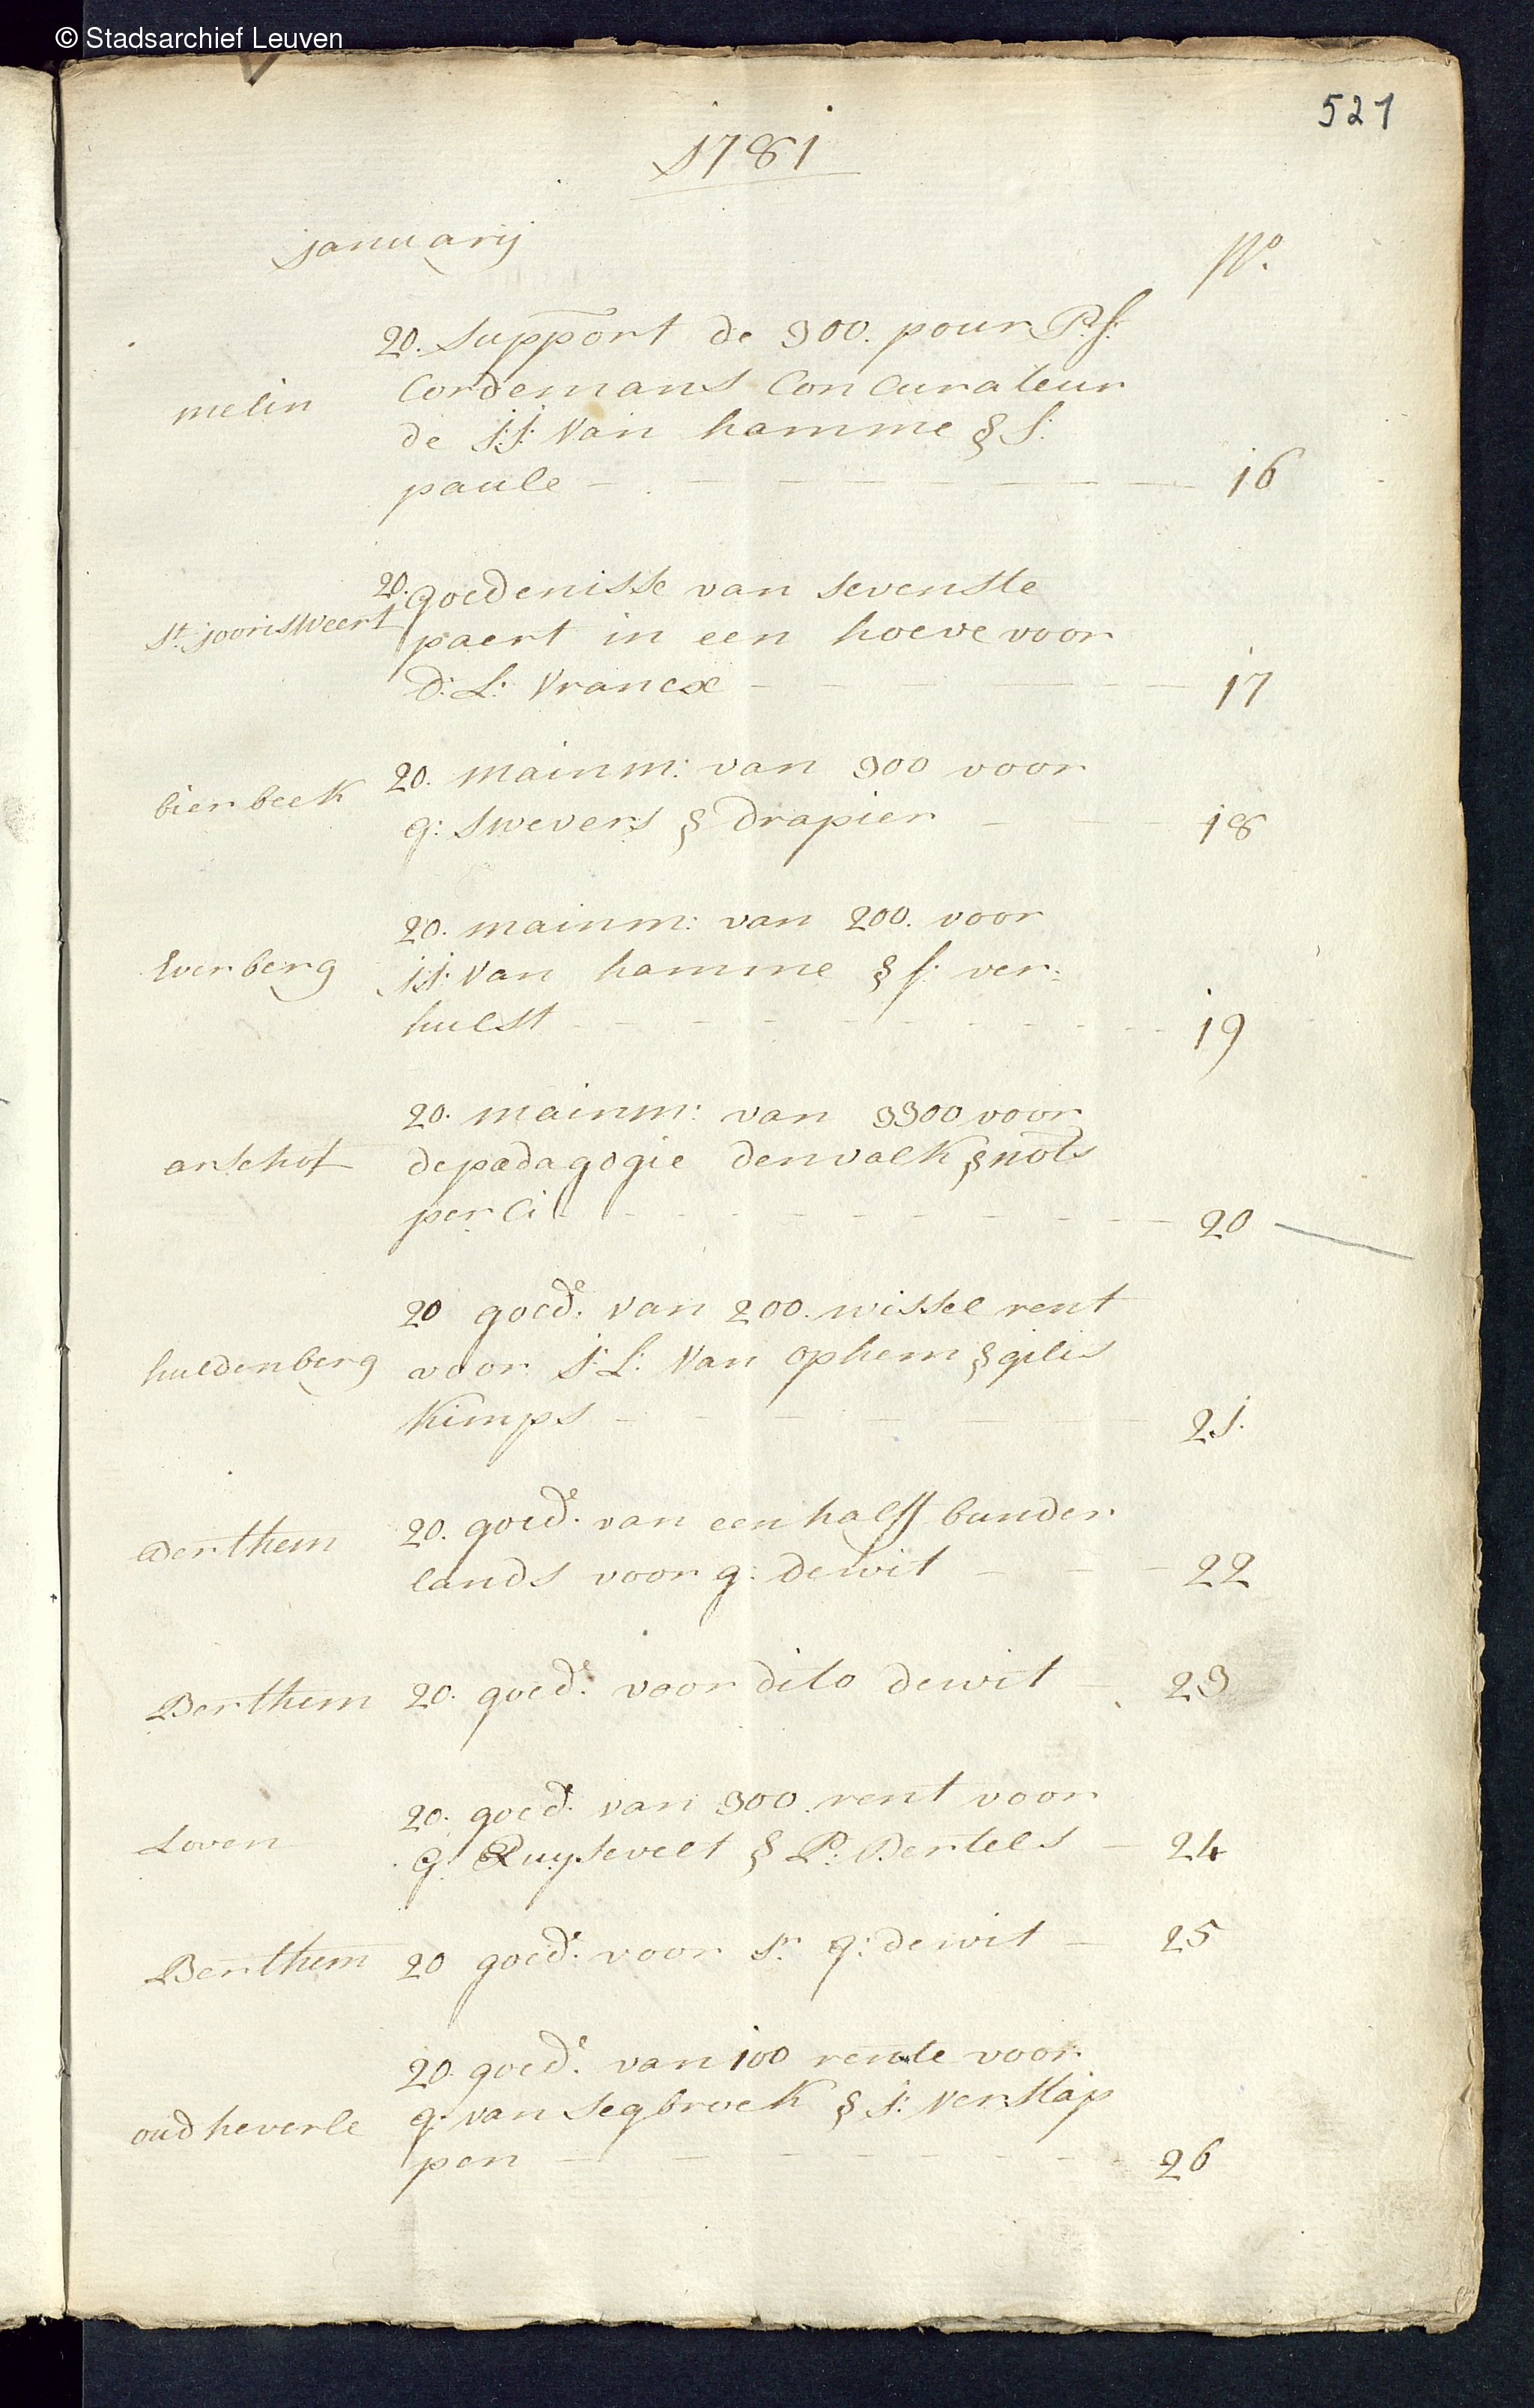 © Stadsarchief Leuven
521
1781
januarij
No.
20. support de 300. pour P: f:
melin
Cordemans Con Curateur
de j: j: Van hamme § f:
paule - - - - - - 16
20. goedenisse van sevenste
st. joorisweert
paert in een hoeve voor
d: L: Vrancx - - - - - 17
20. mainm: van 300 voor
bierbeek
g: swevers § Drapier - - - 18
20. mainm: van 200. voor
Everberg
j: j: Van hamme § f: ver:
hulst - - - - - - 19
20. mainm: van 3300 voor
arschot
de pædagogie den valk § nots
per Ci - - - - - - 20
20 goede. van 200. wissel rent
huldenberg
voor j: L: Van ophem § gilis
Kimps - - - 21.
20. goede. van een halff bunder
Berthem
lands voor g: dewit - - - 22
Berthem 20. goede. voor dito dewit - 23
20. goede. van 300. rent voor
Loven
g: Ruysevelt § P: Bertels - 24
Berthem 20 goede. voor sr. g: dewit - 25
20. goede. van 100 rente voor
oudheverle
g: van segbroek § j: Verstap
pen - - - - - - 26